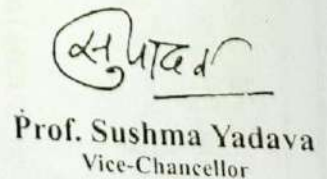 सुषमा यादव
Prof. Sushma Yadava
Vice-Chancellor